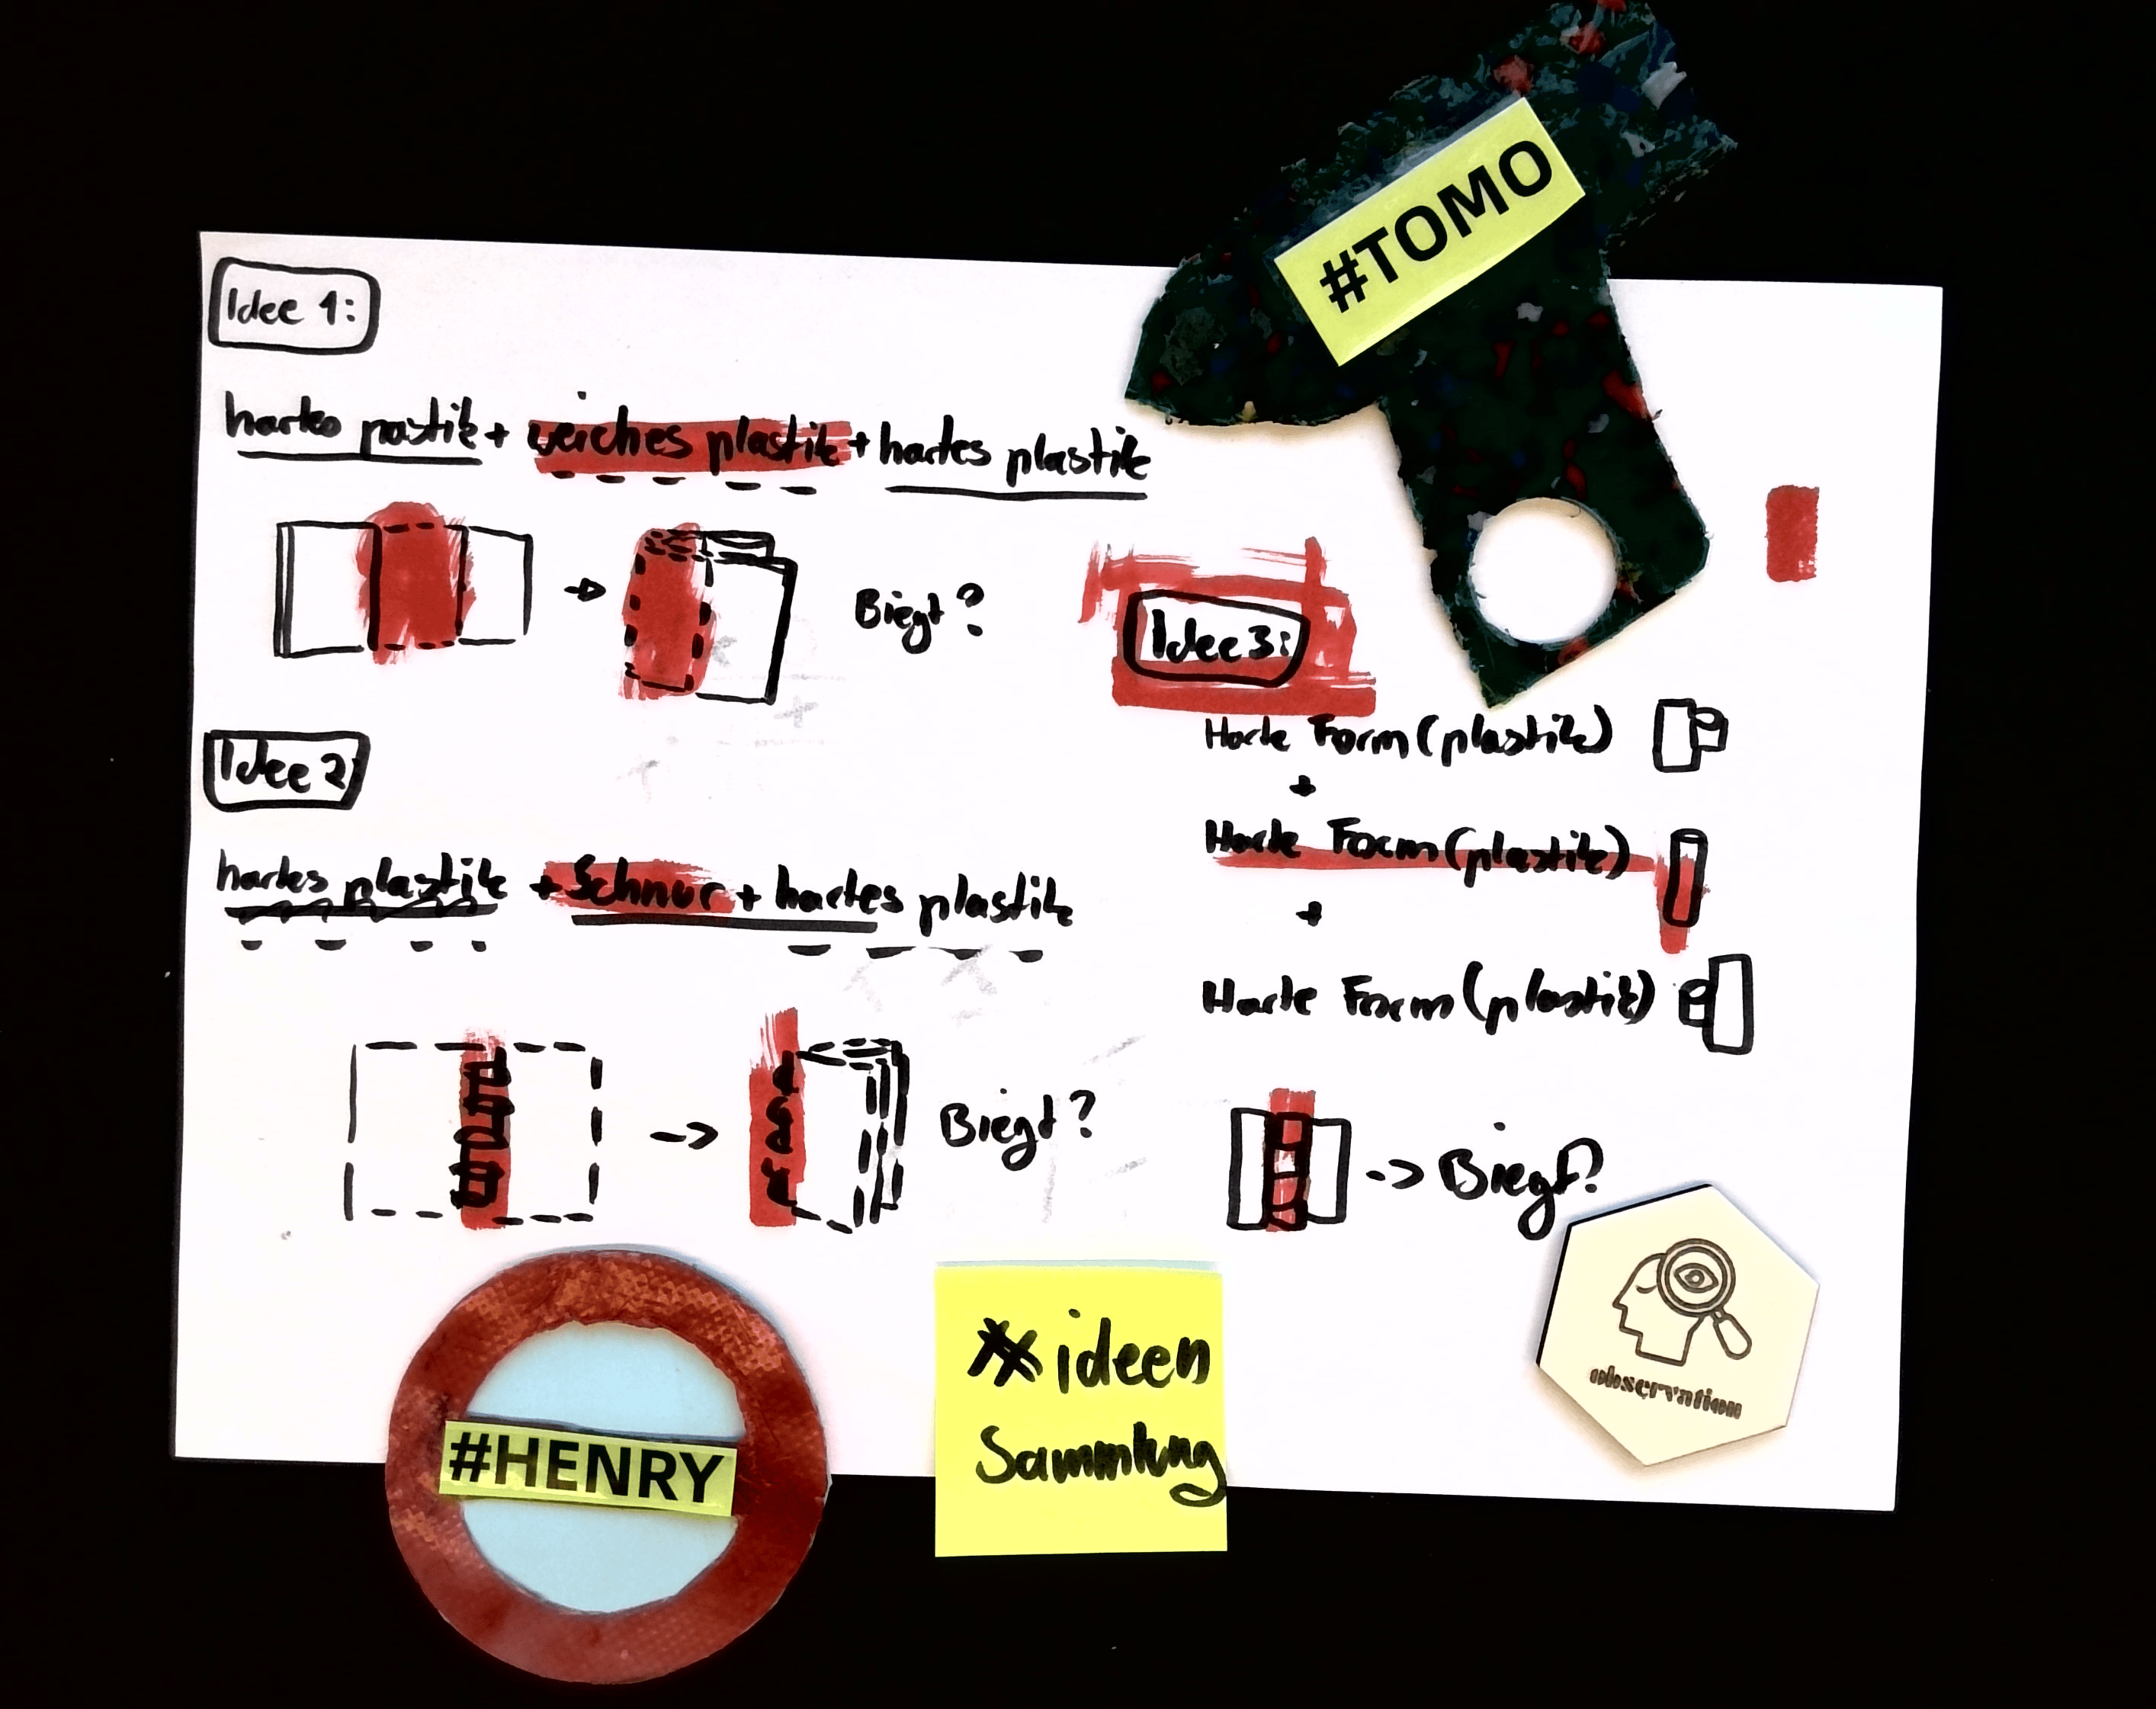 #TOMO
Idee 1:
hartes pastik + weiches plastik + hartes plastik
Biegt?
Idee 2:
hartes plastik + Schnur + hartes plastik
Biegt?
Idee 3:
Harte Form (plastik)
+
Harte Form (plastik)
+
Harte Form (plastik)
-> Biegt?
#HENRY
ideen
Sammlung
observation